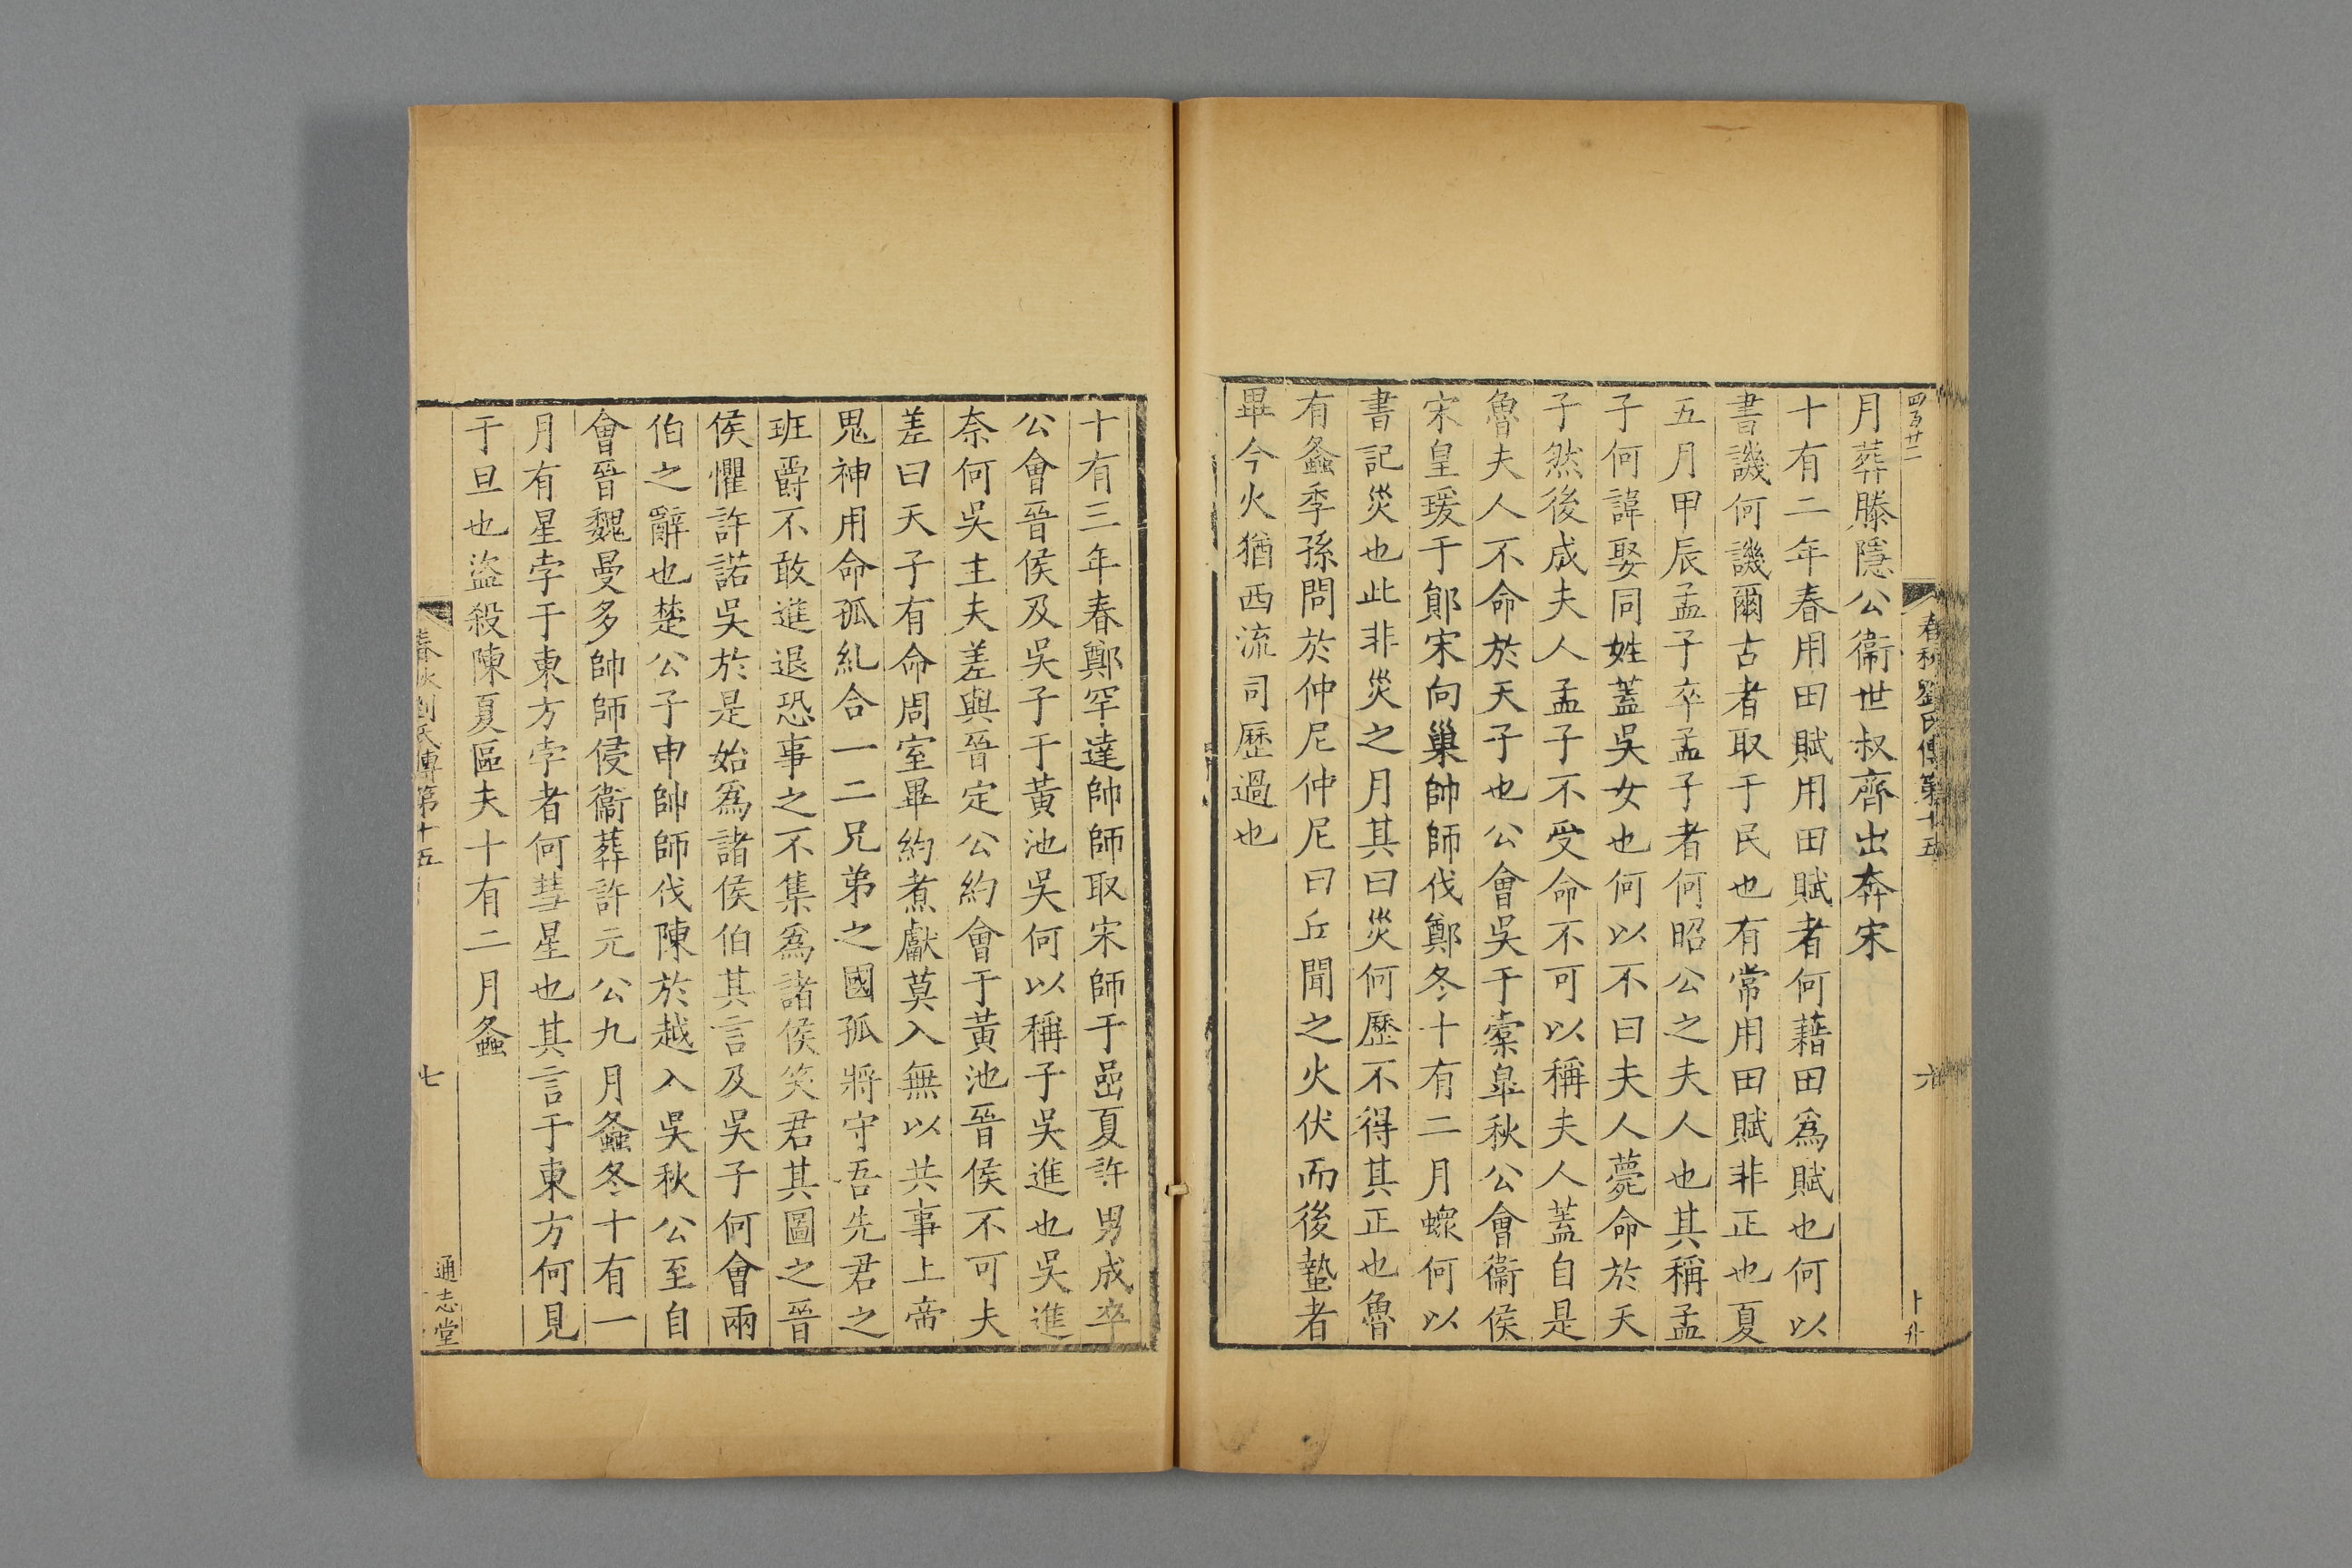 四百廿二
春秋劉氏傳第十五
六
卜升
月葬滕隱公衞世叔齊出奔宋
十有二年春用田賦用田賦者何藉田爲賦也何以
書譏何譏爾古者取于民也有常用田賦非正也夏
五月甲辰孟子卒孟子者何昭公之夫人也其稱孟
子何諱娶同姓蓋吳女也何以不曰夫人薨命於天
子然後成夫人孟子不受命不可以稱夫人蓋自是
魯夫人不命於天子也公會吳于橐皐秋公會衞侯
宋皇瑗于鄖宋向巢帥師伐鄭冬十有二月螽何以
書記災也此非災之月其曰災何歷不得其正也魯
有螽季孫問於仲尼仲尼曰丘聞之火伏而後蟄者
畢今火猶西流司歷過也
十有三年春鄭罕達帥師取宋師于嵒夏許男成卒
公會晉侯及吳子于黃池吳何以稱子吳進也吳進
奈何吳主夫差與晉定公約會于黃池晉侯不可夫
差曰天子有命周室畢約煮獻莫入無以共事上帝
鬼神用命孤紏合一二兄弟之國孤將守吾先君之
班爵不敢進退恐事之不集爲諸侯笑君其圖之晉
侯懼許諾吳於是始爲諸侯伯其言及吳子何會兩
伯之辭也楚公子申帥師伐陳於越入吳秋公至自
會晉魏曼多帥師侵衞葬許元公九月螽冬十有一
月有星孛于東方孛者何彗星也其言于東方何見
于旦也盜殺陳夏區夫十有二月螽
春秋劉氏傳第十五
七
通志堂